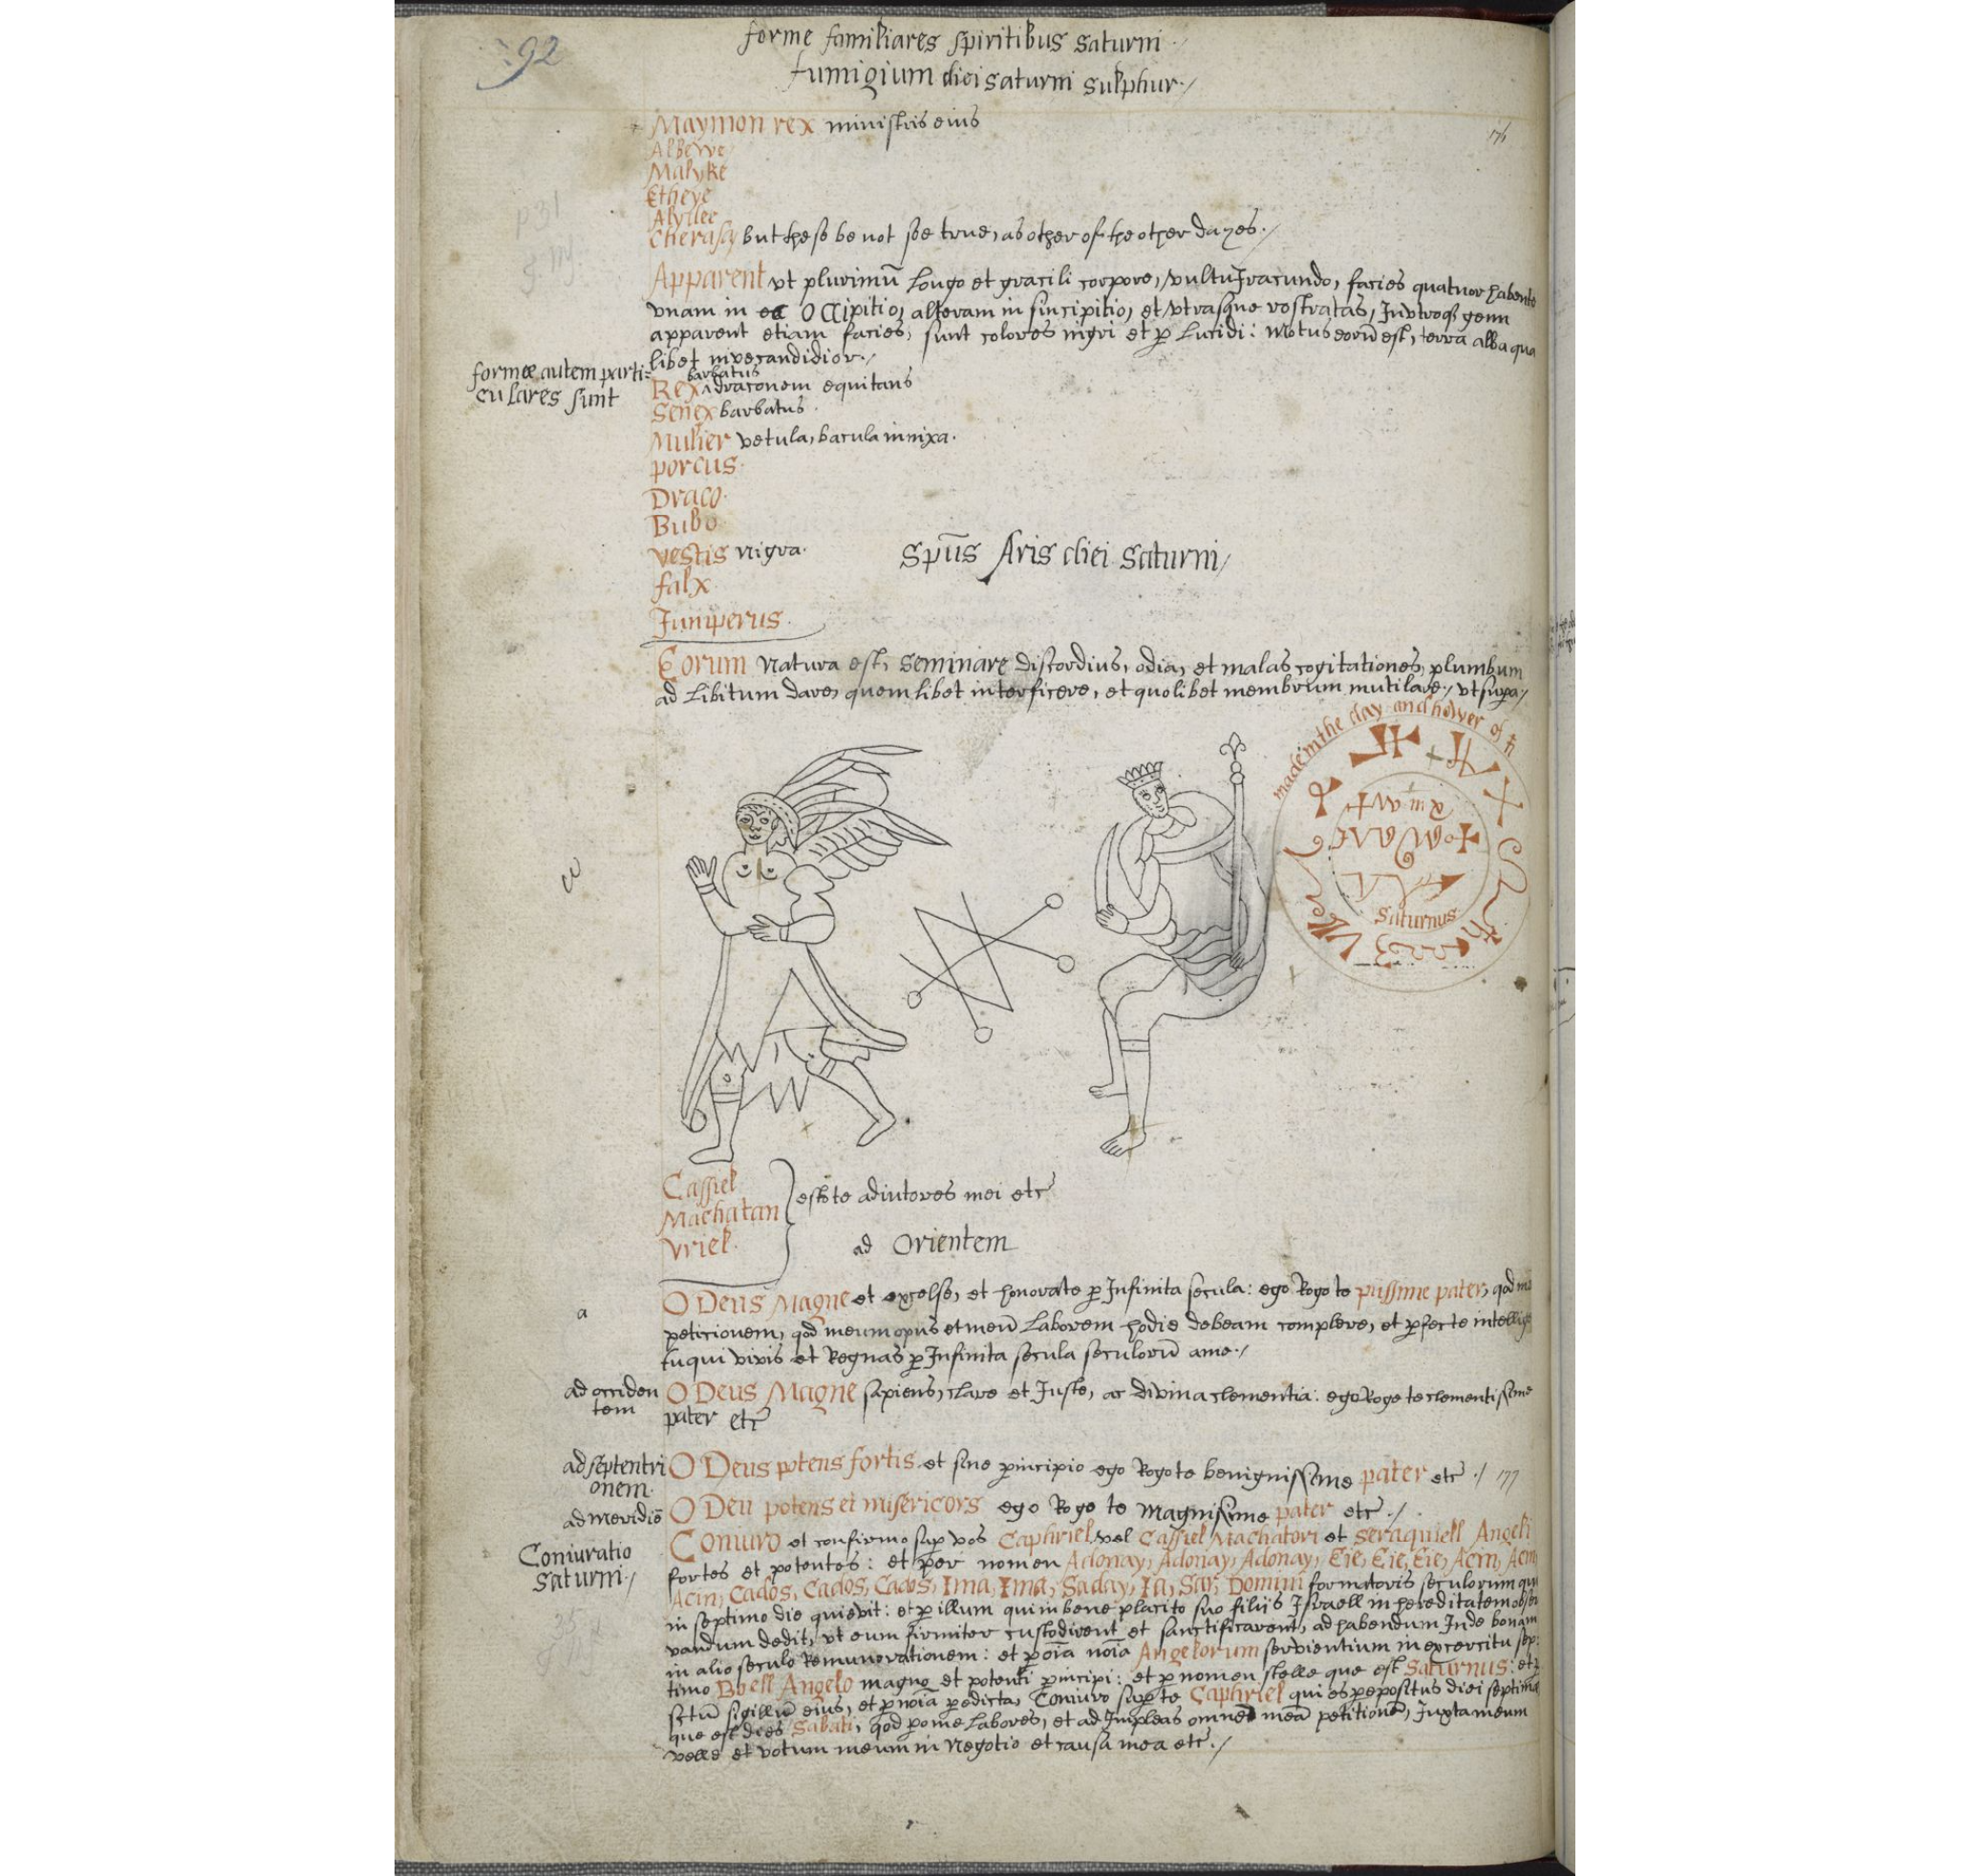 92
forme familiares spiritibus saturni
fumigium diei saturni sulphur
Maymon rex ministris eius
Albewe
Malyke
Etheye
Alyllee
Cherasa but these be not soe true, as other of the other dayes.
Apparent vt plurimū longo et gracili corpore, vultu Iracundo, facies quatuor habente
vnam in occipitio, alteram in sincipitio, et vtrasque rostratas, In vtroq genu
apparent etiam facies, sunt colores nigri et p Lucidi: Motus eorū est, terra alba qua
libet nive candidior.
formæ autem parti=
culares sunt
barbatus
Rex draconem equitans
Senex barbatus.
Mulier vetula, bacula innixa.
porcus.
Draco.
Bubo
vestis nigra.
Spūs Aris diei saturni
falx
Juniperus.
Eorum natura est, seminare discordius, odia, et malas cogitationes, plumbum
ad libitum dare, quemlibet interficere, et quolibet membrum mutilare, vt supa
made in the day and hower of ♄
Saturnus
Cassiel
Machatan
Vriel.
estote adiutores mei etc
ad Orientem
a
O Deus Magne et excelse, et honorate p Infinita secula: ego Rogo te piissime pater, qod
peticionem, qod meum opus et meū Laborem hodie debeam complere, et pfecte intellig
tu qui vivis et Regnas p Infinita secula seculorū ame.
ad occiden
tem
O Deus Magne sapiens, clare et Iuste, ac divina clementia: ego Rogo te clementissime
pater etc
ad septentri
onem.
O Deus potens fortis et sine principio ego Rogo te benignissime pater etc. 177
ad meridiē
O Deu potens et misericors ego Rogo te magnissime pater etc.
Coniuratio
Saturni.
Coniuro et confirmo sup vos Caphriel, vel Cassiel Machatori et Seraquiell Angeli
fortes et potentes: et per nomen Adonay, Adonay, Adonay, Eie, Eie, Eie, Acin, Acin
Acin, Cados, Cados, Cados, Ima, Ima, Saday, Ia, Sar, Domini formatoris seculorum qui
in septimo die quievit: et p illum qui in bene placito suo filiis Israell in hereditatem obser
vandum dedit, vt eum firmiter custodirent et sanctificarent, ad habendum Inde bonam
in alio seculo Remunerationem: et p oīa noīa Angelorum servientium in excercitu sep:
timo Boell Angelo magno et potenti principi: et p nomen stelle que est Saturnus: et p
sctū sigillū eius, et p noīa predicta, Coniuro sup te Caphriel qui es prepositus diei septime
que est dies Sabati, qod p me Labores, et ad Impleas omnem meā petitionē, Juxta meum
velle et votum meum in negotio et causa mea etc.